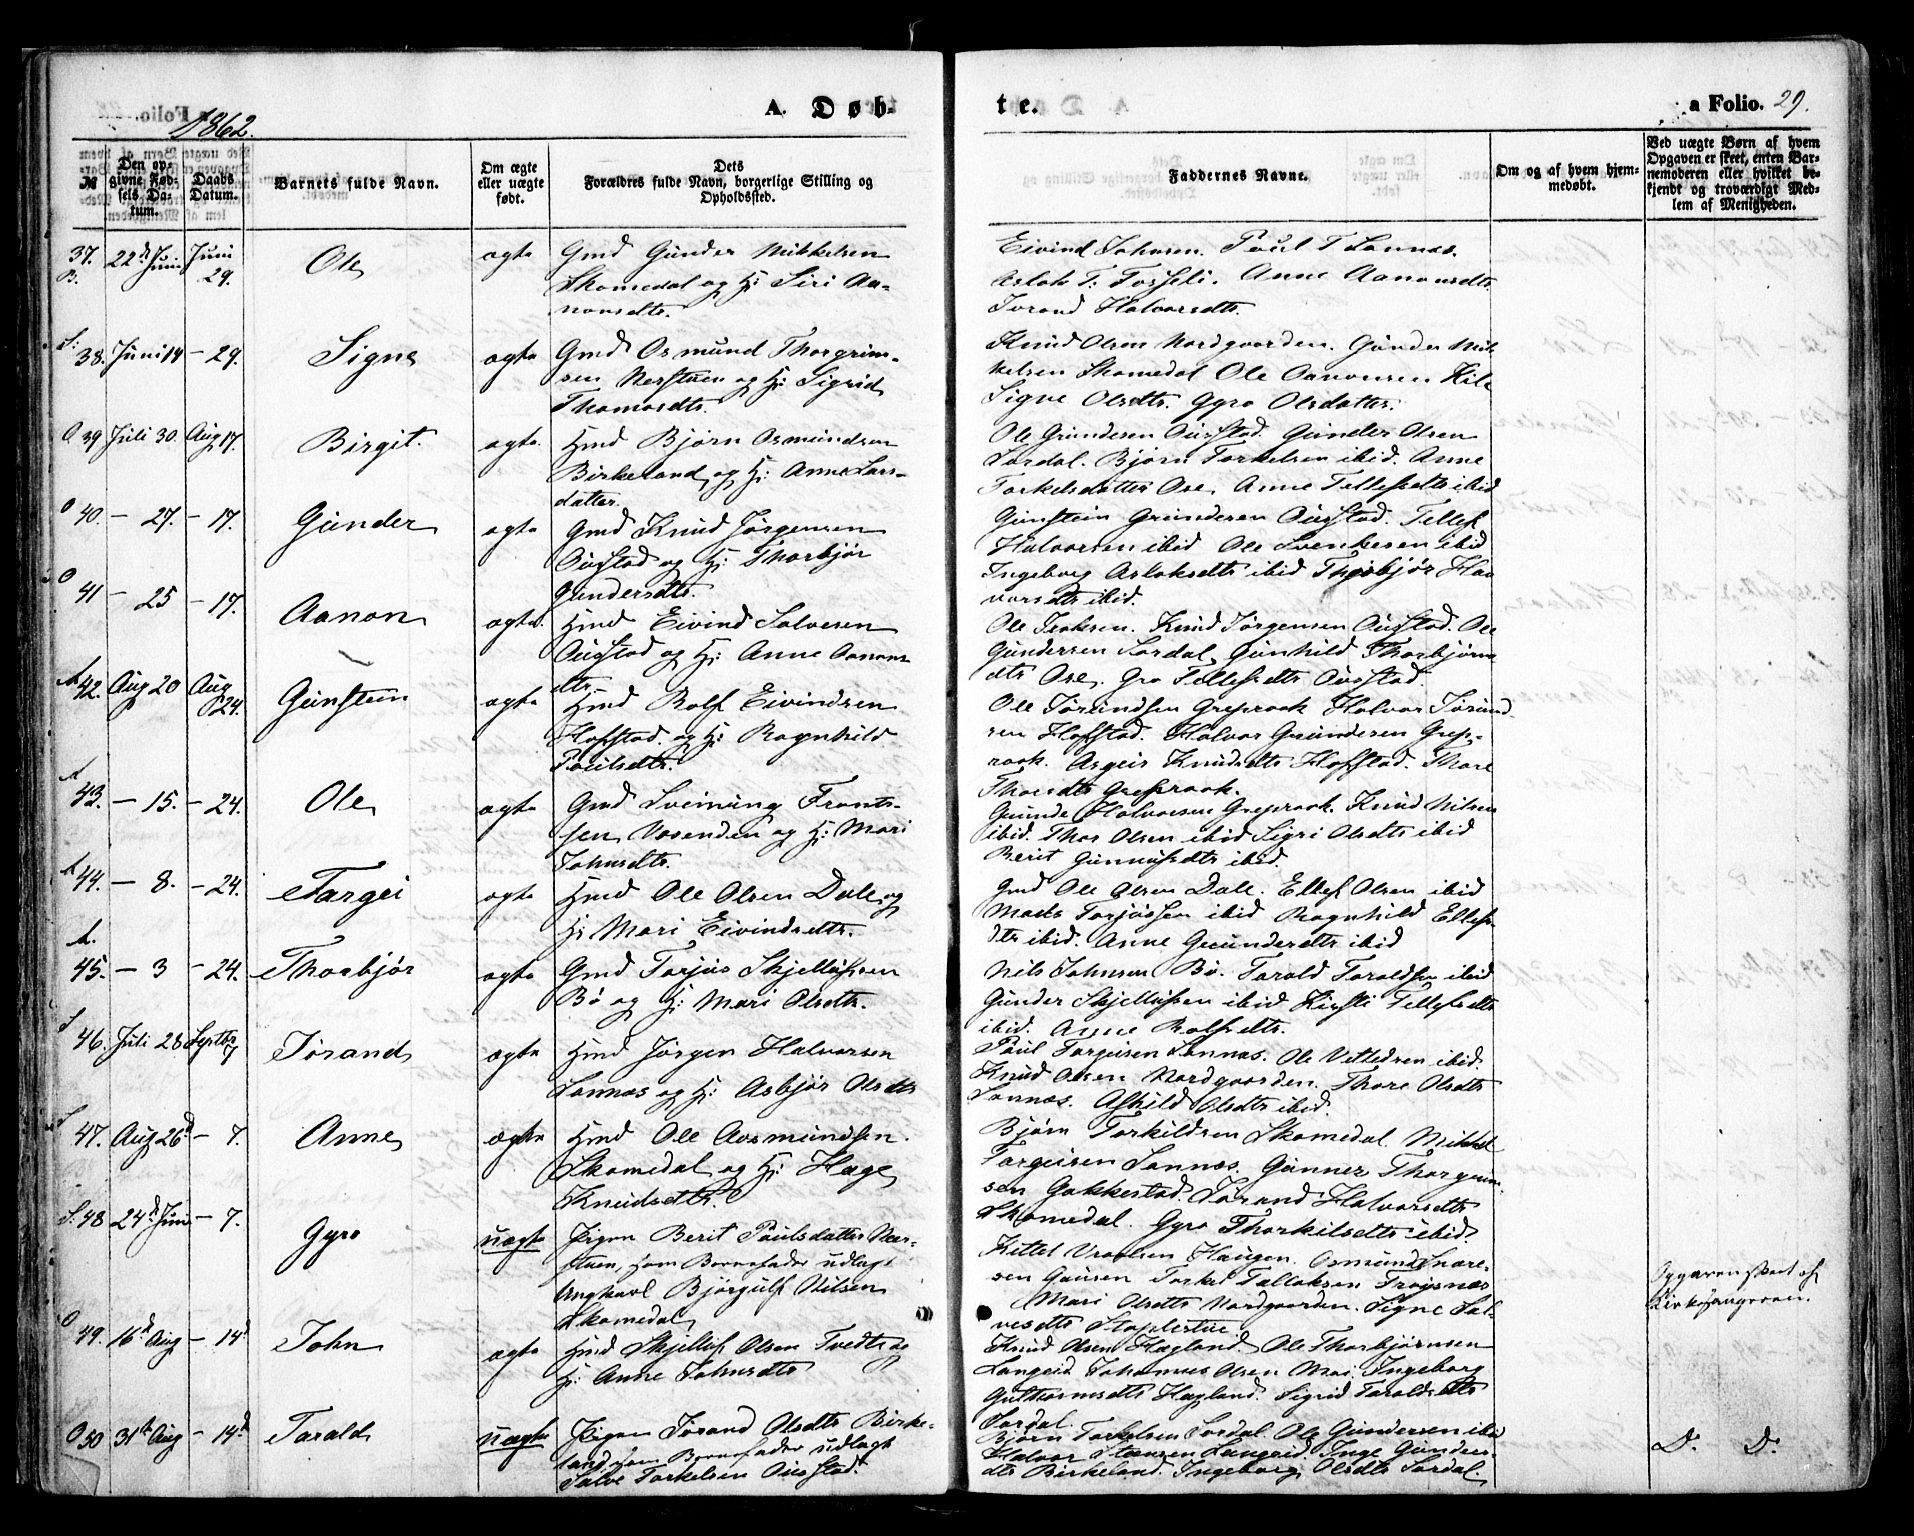 1862.
A. Døb-
te.
a Folio. 29.
№
Den op-
givne Fød-
sels Da-
tum.
Daabs
Datum.
Barnets fulde Navn.
Om ægte
eller uægte
født.
Dets
Forældres fulde Navn, borgerlige Stilling og
Opholdssted.
Faddernes Navne.
Om og af hvem hjem-
medøbt.
Ved uægte Børn af hvem
Opgaven er skeet, enten Bar-
nemoderen eller hvilket be-
kjendt og troværdigt Med-
lem af Menigheden.
37. 22d Juni Juni 29. Ole ægte Gmd Gunder Mikkelsen
B.
Skomedal og H: Siri Aa-
nonsdtr.
Eivind Johnsen. Poul T. Lonnas.
Aslak T. Fosseli. Anne Aanonsdtr.
Torand Halvorsdtr.
S: 38. Juni 14 – 29. Signe ægte Gmd Osmund Thorgrim-
sen Nerstuen og H: Sigrid
Thomasdtr.
Knud Olsen Nordgaarden. Gunder Mik-
kelsen Skomedal Ole Aanonsen Kile
Signe Olsdtr. Gyro Olsdatter.
O 39 Juli 30. Aug 17. Birgit. ægte. Hmd Bjørn Osmundsen
Birkeland og H: Anne Lars-
datter.
Ole Gundersen Ousstad. Gunder Olsen
Sordal. Bjørn Torkelsen ibid. Anne
Torkelsdatter Ose. Anne Tellefsdtr ibid
O 40. – 27. – 17. Gunder ægte Gmd Knud Jørgensen
Ousstad og H: Thorbjør
Gundersdtr.
Gunstein Gundersen Ousstad. Tellef
Halvorsen ibid Ole Svenkesen ibid
Ingeborg Aslaksdtr ibid Thorbjør Hal
vorsdtr ibid.
O 41 – 25 – 17. Aanon ægte. Hmd Eivind Salvesen
Ousstad og H: Anne Aanons
dtr.
Ole Knud Jørgensen Ousstad. Ole
Gundersen Sordal. Gunhild Thorbjørns
dtr Ose. Gro Tellefsdtr Ousstad.
A 42. Aug 20 Aug 24. Gunstein ægte Hmd Rolf Eivindsen
Hofstad og H: Ragnhild
Poulsdtr.
Ole Jørundsen Greprook Halvor Jørund
sen Hofstad. Halvor Gundersen Grep-
rook. Asgeir Knudsdtr Hofstad. Thore
Thorsdtr Greprook.
A 43. – 15. – 24. Ole ægte Gmd Sveinung Fronts-
sen Vosenden og H: Mari
Johnsdtr.
Gunde Halvorsen Greprook. Knud Nilsen
ibid. Thor Olsen ibid Sigri Olsdtr ibid
Berit Gunnufsdtr ibid.
A 44. – 8. – 24. Targei ægte Hmd Ole Olsen Dale og
H: Mari Eivindsdtr.
Gmd Ole Olsen Dale. Ellef Olsen ibid
Mads Torjussen ibid Ragnhild Ellefs-
dtr ibid. Anne Gundersdtr ibid
A.
45. – 3 – 24. Thorbjør ægte Gmd Torjus Skjellufsen
Bø og H: Mari Olsdtr.
Nils Johnsen Bø. Torald Toraldsen ibid
Gunder Skjellufsen ibid Kirsti Tellefsdtr
ibid. Anne Rolfsdtr.
S 46. Juli 28 Septbr 7 Torand ægte Hmd Jørgen Halvorsen
Lonnas og H: Asbjør Olsdtr
Poul Torgeisen Lonnas. Ole Vettedsen ibid.
Knud Olsen Nordgaarden. Thore Olsdtr
Lonnas. Ashild Olsdtr ibid.
S 47. Aug 26d – 7. Anne ægte Hmd Ole Aasmundsen.
Skomedal og H: Hæge
Knudsdtr.
Bjørn Torkildsen Skomedal. Mikkel
Torgeisen Lonnas. Gunner Thorgrim-
sen Gakkestad. Torand Halvorsdtr
Skomedal. Gyro Thorkilsdtr ibid.
S: 48 24d Juni – 7. Gyro uægte Pigen Berit Paulsdatter Ner-
stuen, som Barnefader udlagt
Ungkarl Bjørgulf Nilsen
Skomedal
Kittel Vraalsen Haugen. Osmund Snare-
sen Gausen Torkel Tallaksen Frøysnes
Mari Olsdtr Nordgaarden. Signe Sal-
vesdtr Stoplestue
Opgaven skeet af
Kirkesangeren.
O 49. 16d Aug – 14d John ægte Hmd Skjelluf Olsen Tvedt og
H: Anne Johnsdtr
Knud Olsen Hægland. Ole Thorbjørnsen
Langeid Johannes Olsen Moi. Ingeborg
Guthormsdtr Hægland. Sigrid Taraldsdtr
Sordal.
O 50 31te Aug – 14d Tarald uægte Pigen Torand Olsdtr Birke-
land som Barnefader udlagt
Salve Torkelsen Ousstad.
Bjørn Torkelsen Sordal. Ole Gundersen ibid
Halvor Langeid. Inge Gunders-
dtr Birkeland. Ingeborg Olsdtr Sordal.
D. D.